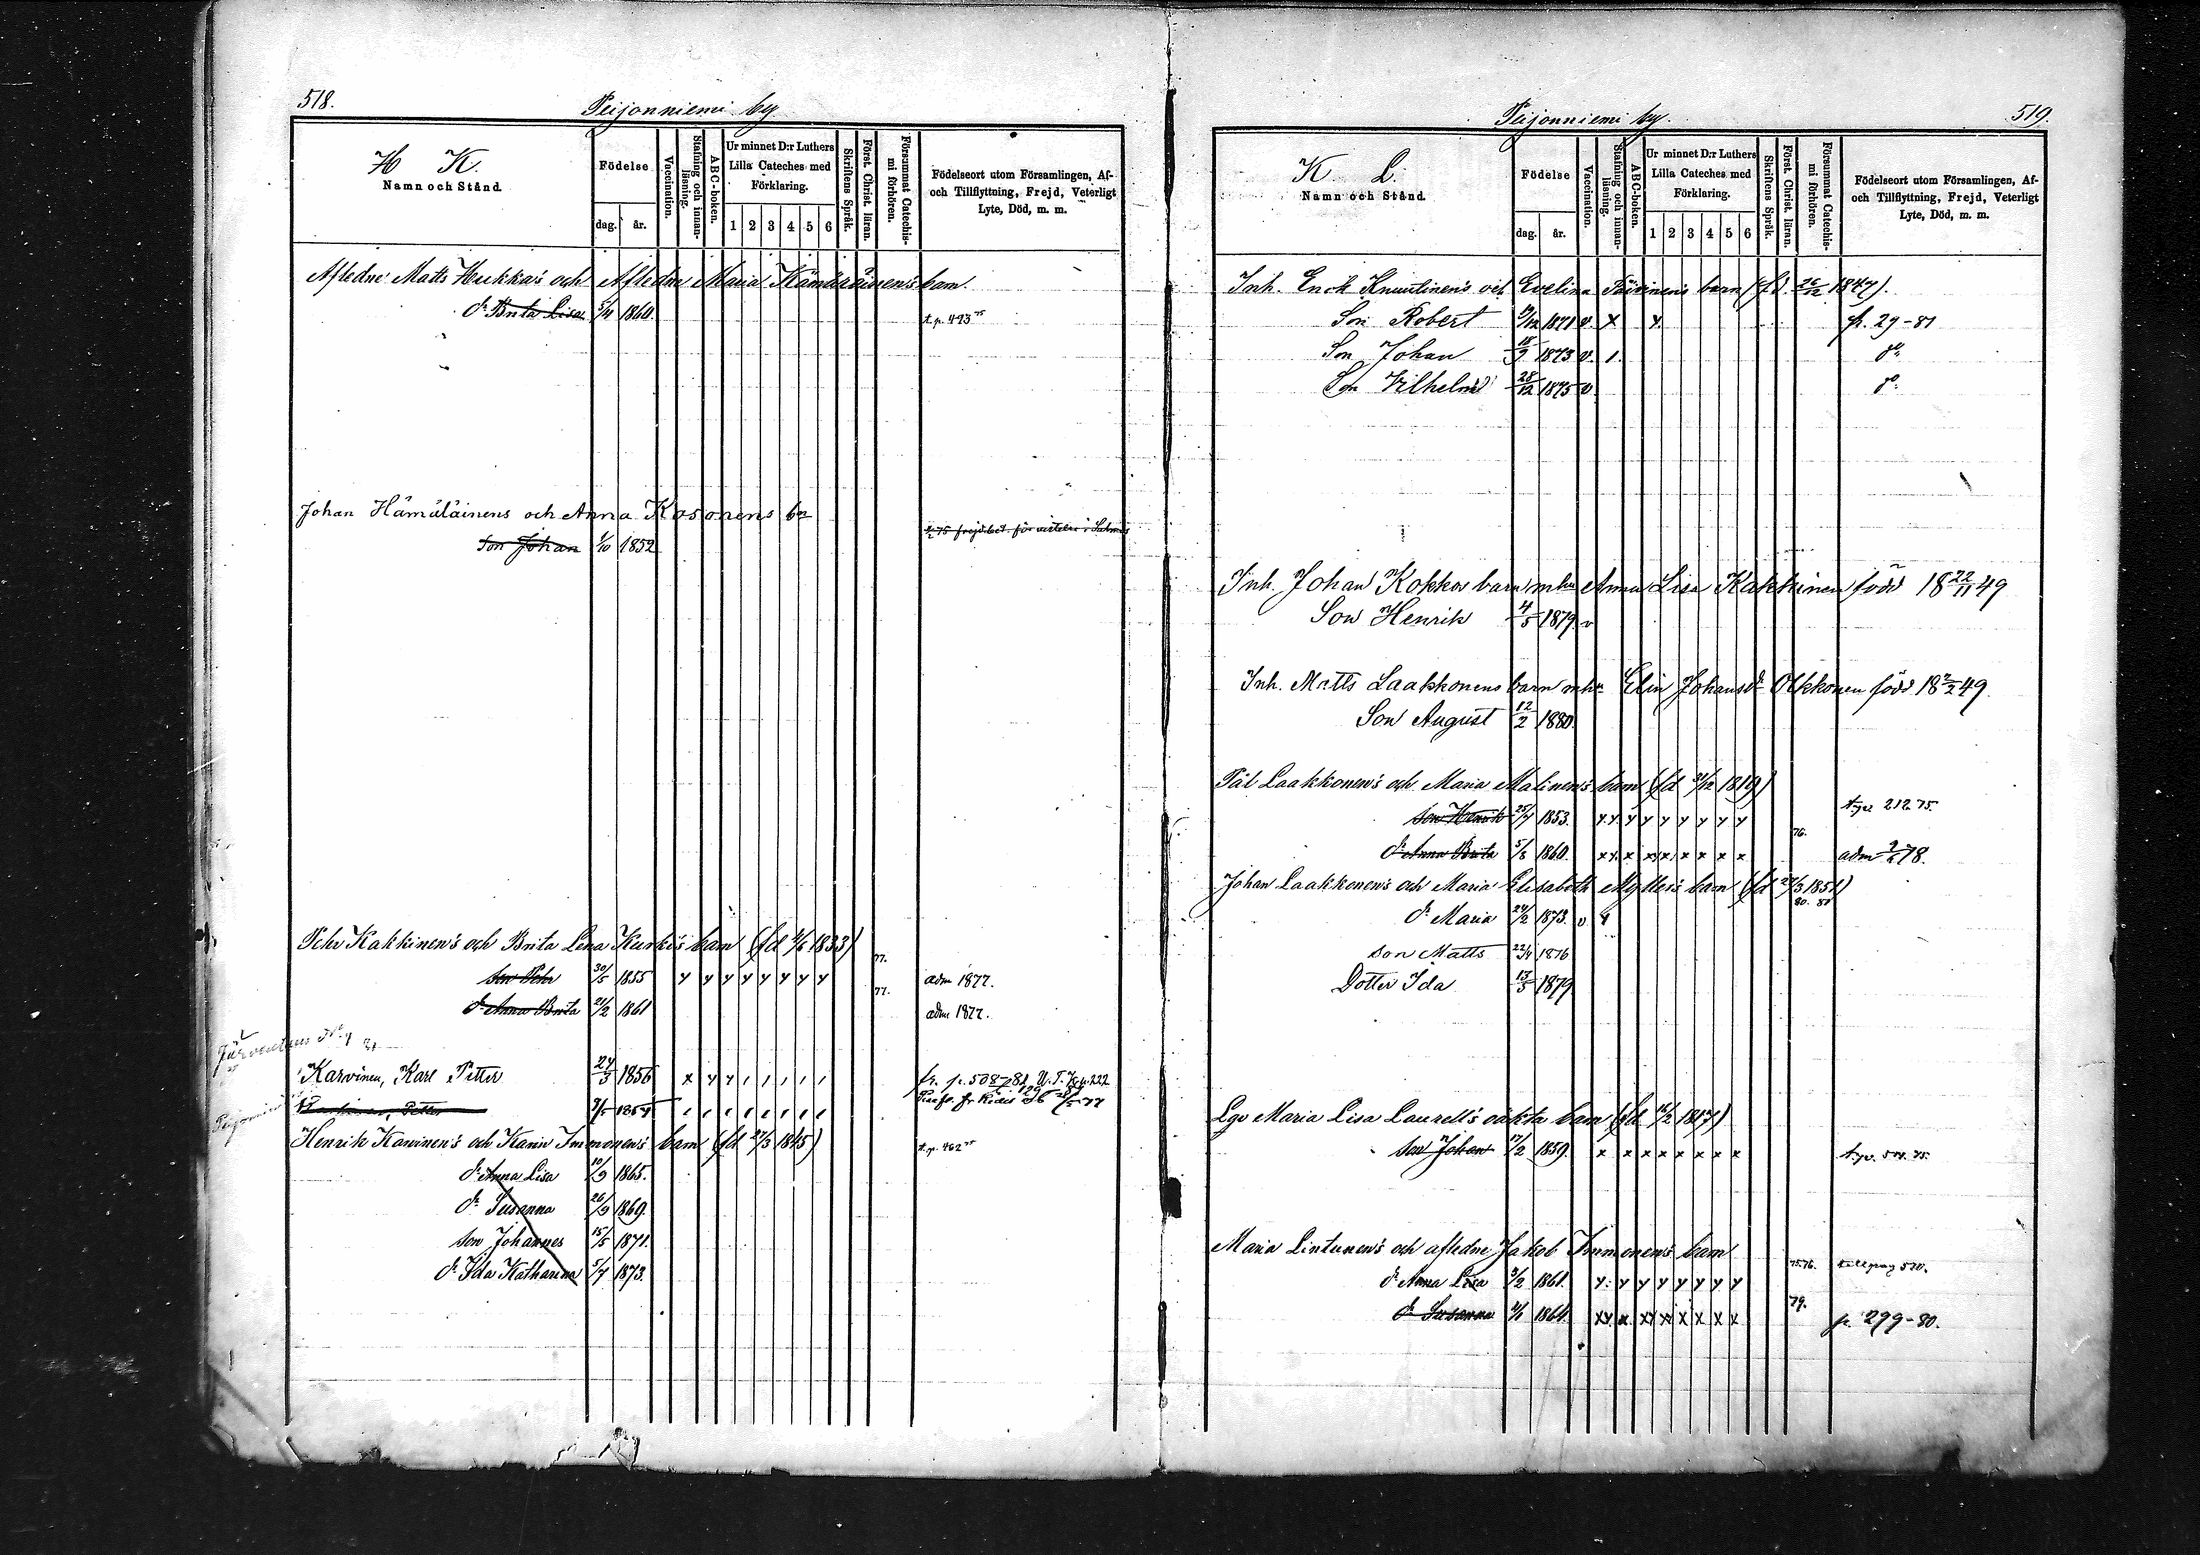 518.
Peijonniemi by
H K.
Namn och Stånd.
Födelse
dag. år.
Vaccination.
Stafning och innanläsning.
ABC-boken.
Ur minnet D:r Luthers Lilla Cateches med Förklaring.
1 2 3 4 5 6
Skriftens Språk.
Först. Christ. läran.
Försummat Catechismi förhören.
Födelseort utom Församlingen, Af- och Tillflyttning, Frejd, Veterligt Lyte, Död, m. m.
Afledne Matts Hukka's och Afledne Maria Hämäläinen's barn.
dr Brita Lisa 5/4 1860. t.p. 493 75
Johan Hämäläinens och Anna Kosonens bn
Son Johan 1/10 1852 75 frejdbet. för vistelse i
Petr Kakkinen's och Brita Lena Kurki's barn (fd 4/6 1833)
son Petr 30/5 1855 y y y y y y y y 77. adm 1877.
dr Anna Brita 21/2 1861 77. adm 1877.
Karvinen, Karl Petter 24/3 1856 x y y / / / / / fr. p. 508-78
Petter
Henrik Karvinen's och Karin Immonen's barn (fd 27/3 1845) t.p. 462 75
dr Anna Lisa 10/9 1865.
dr Susanna 26/9 1869.
son Johannes 15/5 1871.
dr Ida Katharina 5/7 1873.
519.
Peijonniemi by.
K L.
Namn och Stånd.
Födelse
dag. år.
Vaccination.
Stafning och innanläsning.
ABC-boken.
Ur minnet D:r Luthers Lilla Cateches med Förklaring.
1 2 3 4 5 6
Skriftens Språk.
Först. Christ. läran.
Försummat Catechismi förhören.
Födelseort utom Församlingen, Af- och Tillflyttning, Frejd, Veterligt Lyte, Död, m. m.
Inh. Erick Knuutinen's och Evelina Päivinen's barn (fd. 26/12 1847).
Son Robert 9/12 1871 v. x y. fr. 29-81
Son Johan 18/9 1873 v. / do
Son Vilhelm 28/12 1875 v do
Inh. Johan Kokkos barn m hu Anna Lisa Kakkinen född 18 22/11 49
Son Henrik 4/5 1879 v
Inh. Matts Laakkonens barn m hu Elin Johansdr Olkkonen född 18 2/2 49.
Son August 12/2 1880.
Pål Laakkonen's och Maria Malinen's barn (fd 31/12 1819)
son Henrik 25/7 1853. y y y y y y y y 212 75.
dr Anna Brita 5/8 1860. x x x x x x x x 76. adm 78.
Johan Laakkonen's och Maria Elisabeth Mylleri's barn (fd 27/3 1851)
80. 81
dr Maria 24/2 1873. v y
son Matts 22/4 1876
Dotter Ida 13/5 1879
Lgo Maria Lisa Laurell's oäkta barn (fd 16/2 1817)
son Johan 17/2 1859. x x x x x x x x
Maria Lintunen's och afledne Jakob Immonen's barn
dr Anna Lisa 3/2 1861. y. y y y y y y y 75.76. till pag 570.
dr Susanna 4/1 1864. xy x xy x x x x x 79. p. 299-80.